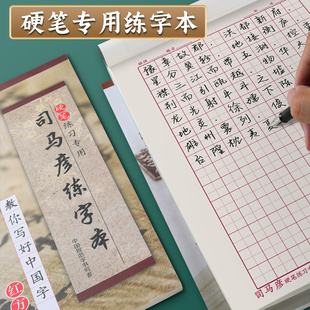 硬笔专用练字本
硬笔练习专用
司马彦练字本
教你写好中国字
红方
豫章故郡,洪都新府。
星分翼轸,地接衡庐。
襟三江而带五湖,
荆而引瓯越。物华天
龙光射牛斗之墟。
地灵,徐孺下陈
雄州雾列,俊
台隍枕夷夏
司马彦 硬笔练习